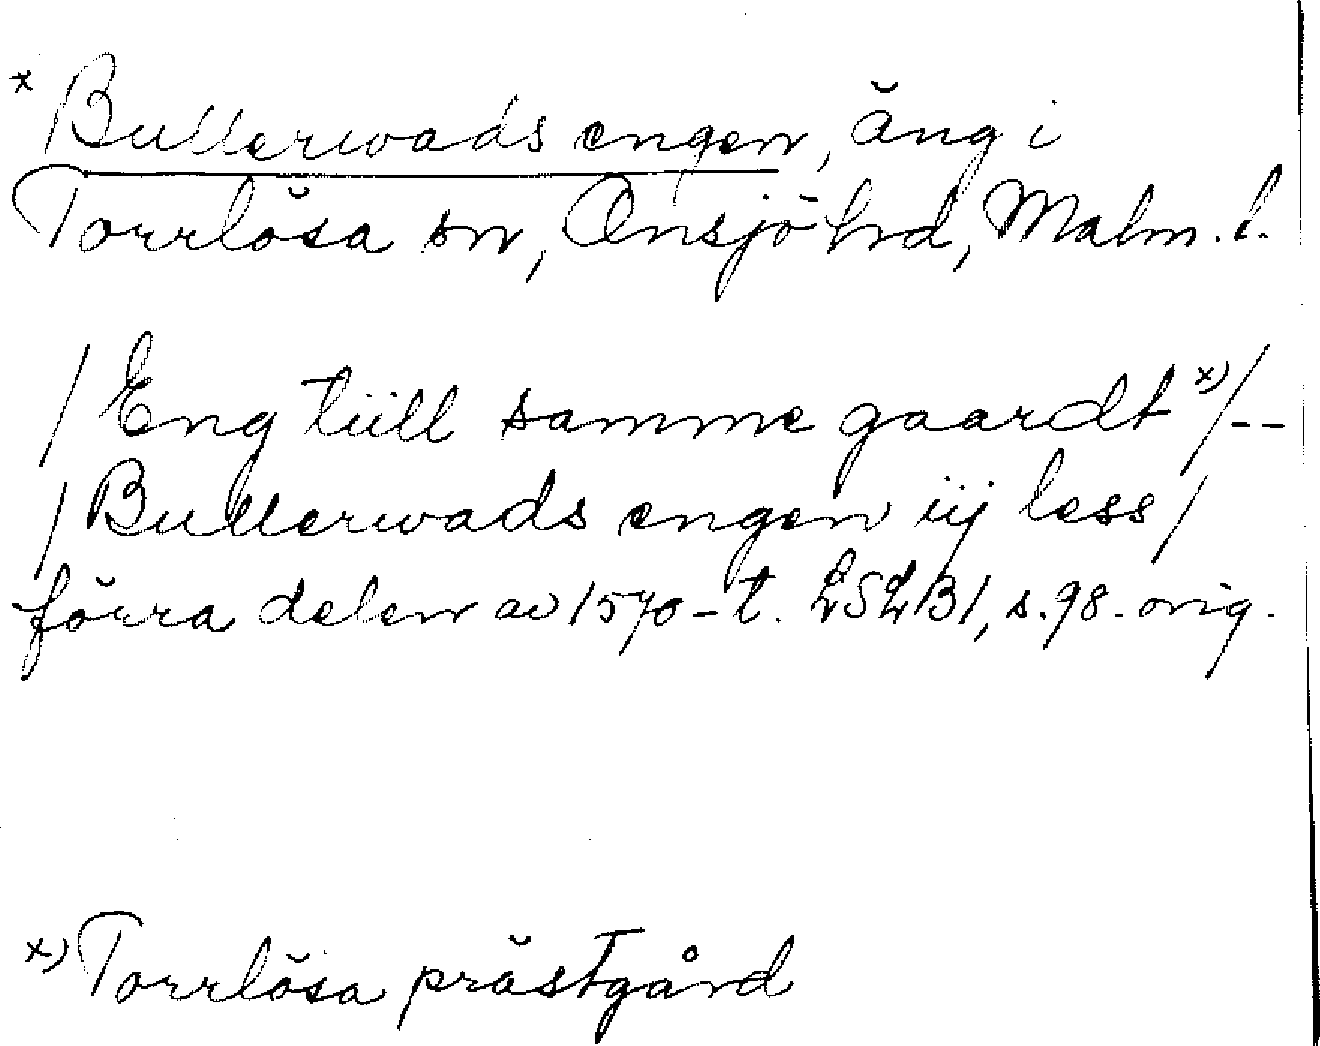 x Bullerwads engen, äng i
Torrlösa sn, Onsjö hrd, Malm. l.
/ Eng tiill samme gaardt x) / --
/ Bullerwads engen iij less /
förra delen av 1570-t. LSLB1, s. 98. orig.
x) Torrlösa prästgård